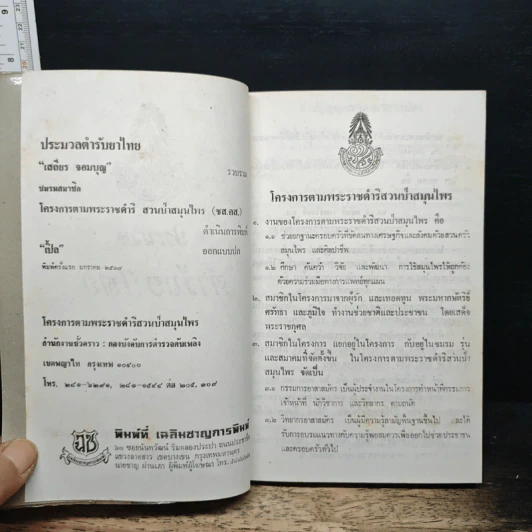 ประมวลตำรับยาไทย
"เสถียร จอมบุญ" รวบรวม
ชมรมสมาชิก
โครงการตามพระราชดำริ สวนป่าสมุนไพร (ชส.คส.)
ดำเนินการพิมพ์
"เปิ้ล" ออกแบบปก
พิมพ์ครั้งแรก มกราคม
โครงการตามพระราชดำริสวนป่าสมุนไพร
สำนักงานชั่วคราว : กองบังคับการตำรวจดับเพลิง
เขตพญาไท กรุงเทพ ๑๐๔๐๐
โทร. ๒๔๑-๒๒๙๑, ๒๔๑-๑๕๕๔ ต่อ ๒๐๕, ๑๐๙
พิมพ์ที่ เฉลิมชาญการพิมพ์
๖๐ ซอยนันทวัฒน์ ริมคลองประปา ถนนประชาชื่น
แขวงลาดยาว เขตบางเขน กรุงเทพมหานคร
นายชาญ ผู้พิมพ์ผู้โฆษณา โทร.
โครงการตามพระราชดำริสวนป่าสมุนไพร
๑. งานของโครงการตามพระราชดำริสวนป่าสมุนไพร คือ
๑.๑ ช่วยยกฐานะครอบครัวที่ขัดสนทางเศรษฐกิจและสังคมด้วยสวนครัว
สมุนไพร และศิลปาชีพ
๑.๒ ศึกษา ค้นคว้า วิจัย และพัฒนา การใช้สมุนไพรให้ถูกต้อง
ด้วยความร่วมมือทางการแพทย์ทุกแผน
๒. สมาชิกในโครงการมาจากผู้รัก และเทอดทูน พระมหากษัตริย์
ศรัทธา และภูมิใจ ทำงานช่วยชาติและประชาชน โดยเสด็จ
พระราชกุศล
๓. สมาชิกในโครงการ แยกอยู่ในโครงการ กับอยู่ในชมรม รุ่น
และสมาคมที่จัดตั้งขึ้น ในโครงการตามพระราชดำริสวนป่า
สมุนไพร จัดเป็น
๓.๑ กรรมการอาสาสมัคร เป็นผู้ประจำงานในโครงการทำหน้าที่กรรมการ
เจ้าหน้าที่ นักวิชาการ และวิทยากร ตามถนัด
๓.๒ วิทยากรอาสาสมัคร เป็นผู้มีความรู้สามัญพื้นฐานขึ้นไป และได้
รับการอบรมแนวทางกับความรู้พอสมควรเพื่อออกไปช่วยประชาชน
และครอบครัวทั่วไป